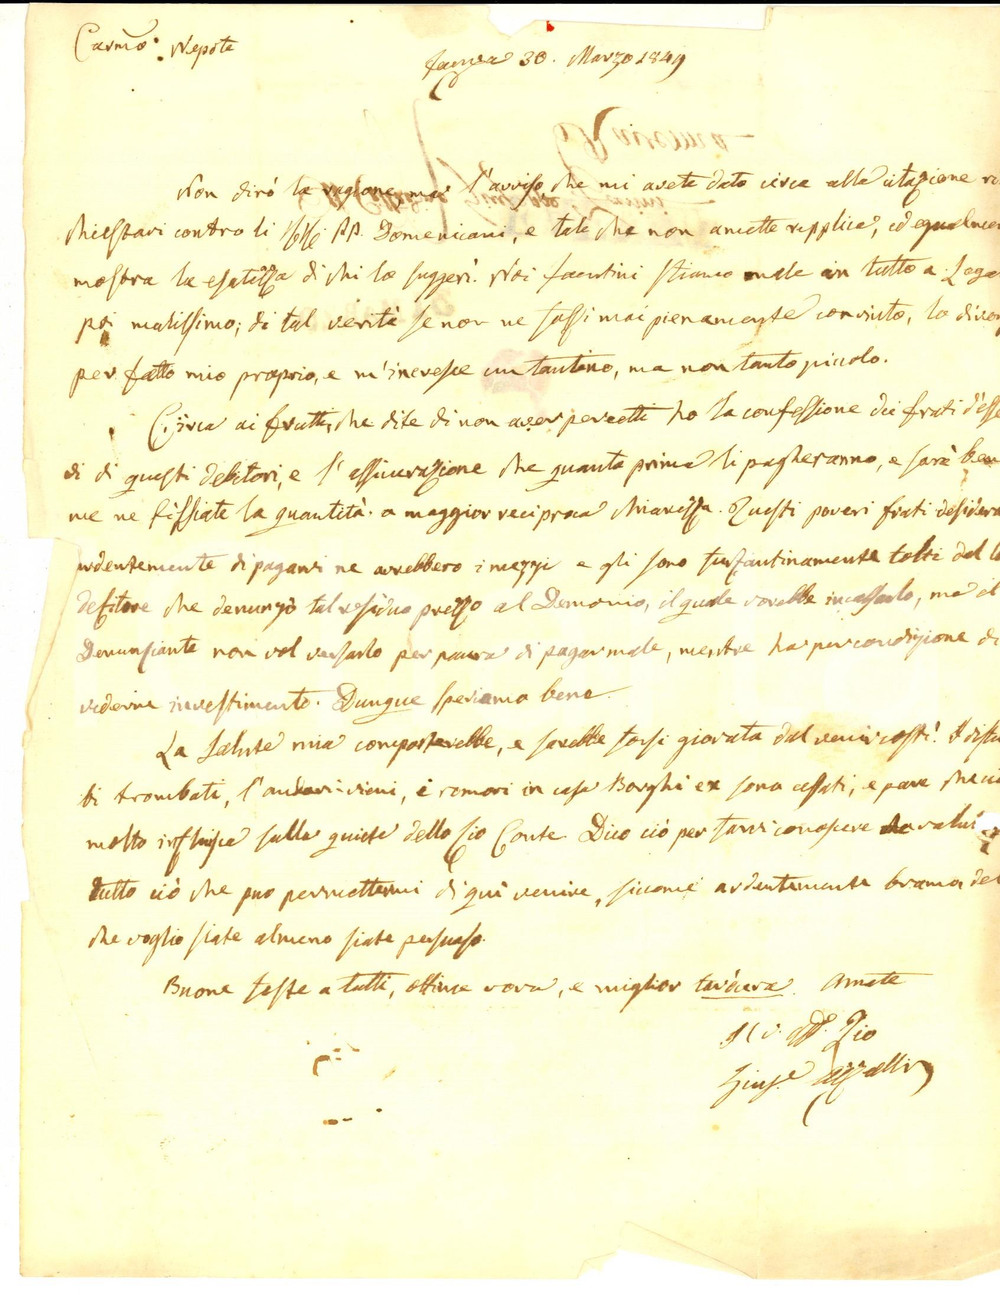 Carmo. Nepote
Faenza 30. Marzo 1849
Ravenna
Non dirò la ragione, ma l'avviso che mi avete dato circa alla citazione
contro li PP. Domenicani, e tale che non amette repplica, ed egualmen
mostra la esatezza di chi lo suggerì. Noi faentini stiamo male in tutto a
poi malissimo; di tal verità se non ne fossi mai pienamente convinto, lo
per fatto mio proprio, e m'incresce un tantino, ma non tanto piccolo.
Circa ai frutti, che dite di non aver percetti ho la confessione dei frati d'esse
di di questi debitori, e l'assicurazione che quanto prima li pagheranno, e sarà ben
me ne fissiate la quantità a maggior reciproca chiarezza. Questi poveri frati desidera
ardentemente di pagarvi ne avrebbero i mezzi e gli sono tolti dal
debitore che denunziò tal residuo prezzo al Demonio, il quale vorebbe incassarlo, ma il
Denunziante non vol versarlo per paura di pagar male, mentre ha per condizione di
vederne investimento. Dunque speriamo bene.
La salute mia comporterebbe, e sarebbe forsi giovata dal venir costì. I
ti trombati, l'andari-vieni, i romori in casa Borghi ex sono cessati, e pare che
molto influisca sulla quiete dello Zio Conte. Dico ciò per farvi conoscere
tutto ciò che può permettermi di quì venire, siccome ardentemente bramo
che voglio siate almeno siate persuaso.
Buone feste a tutti, ottime vova, e miglior Amate
Il v. aff. Zio
Giusp.e